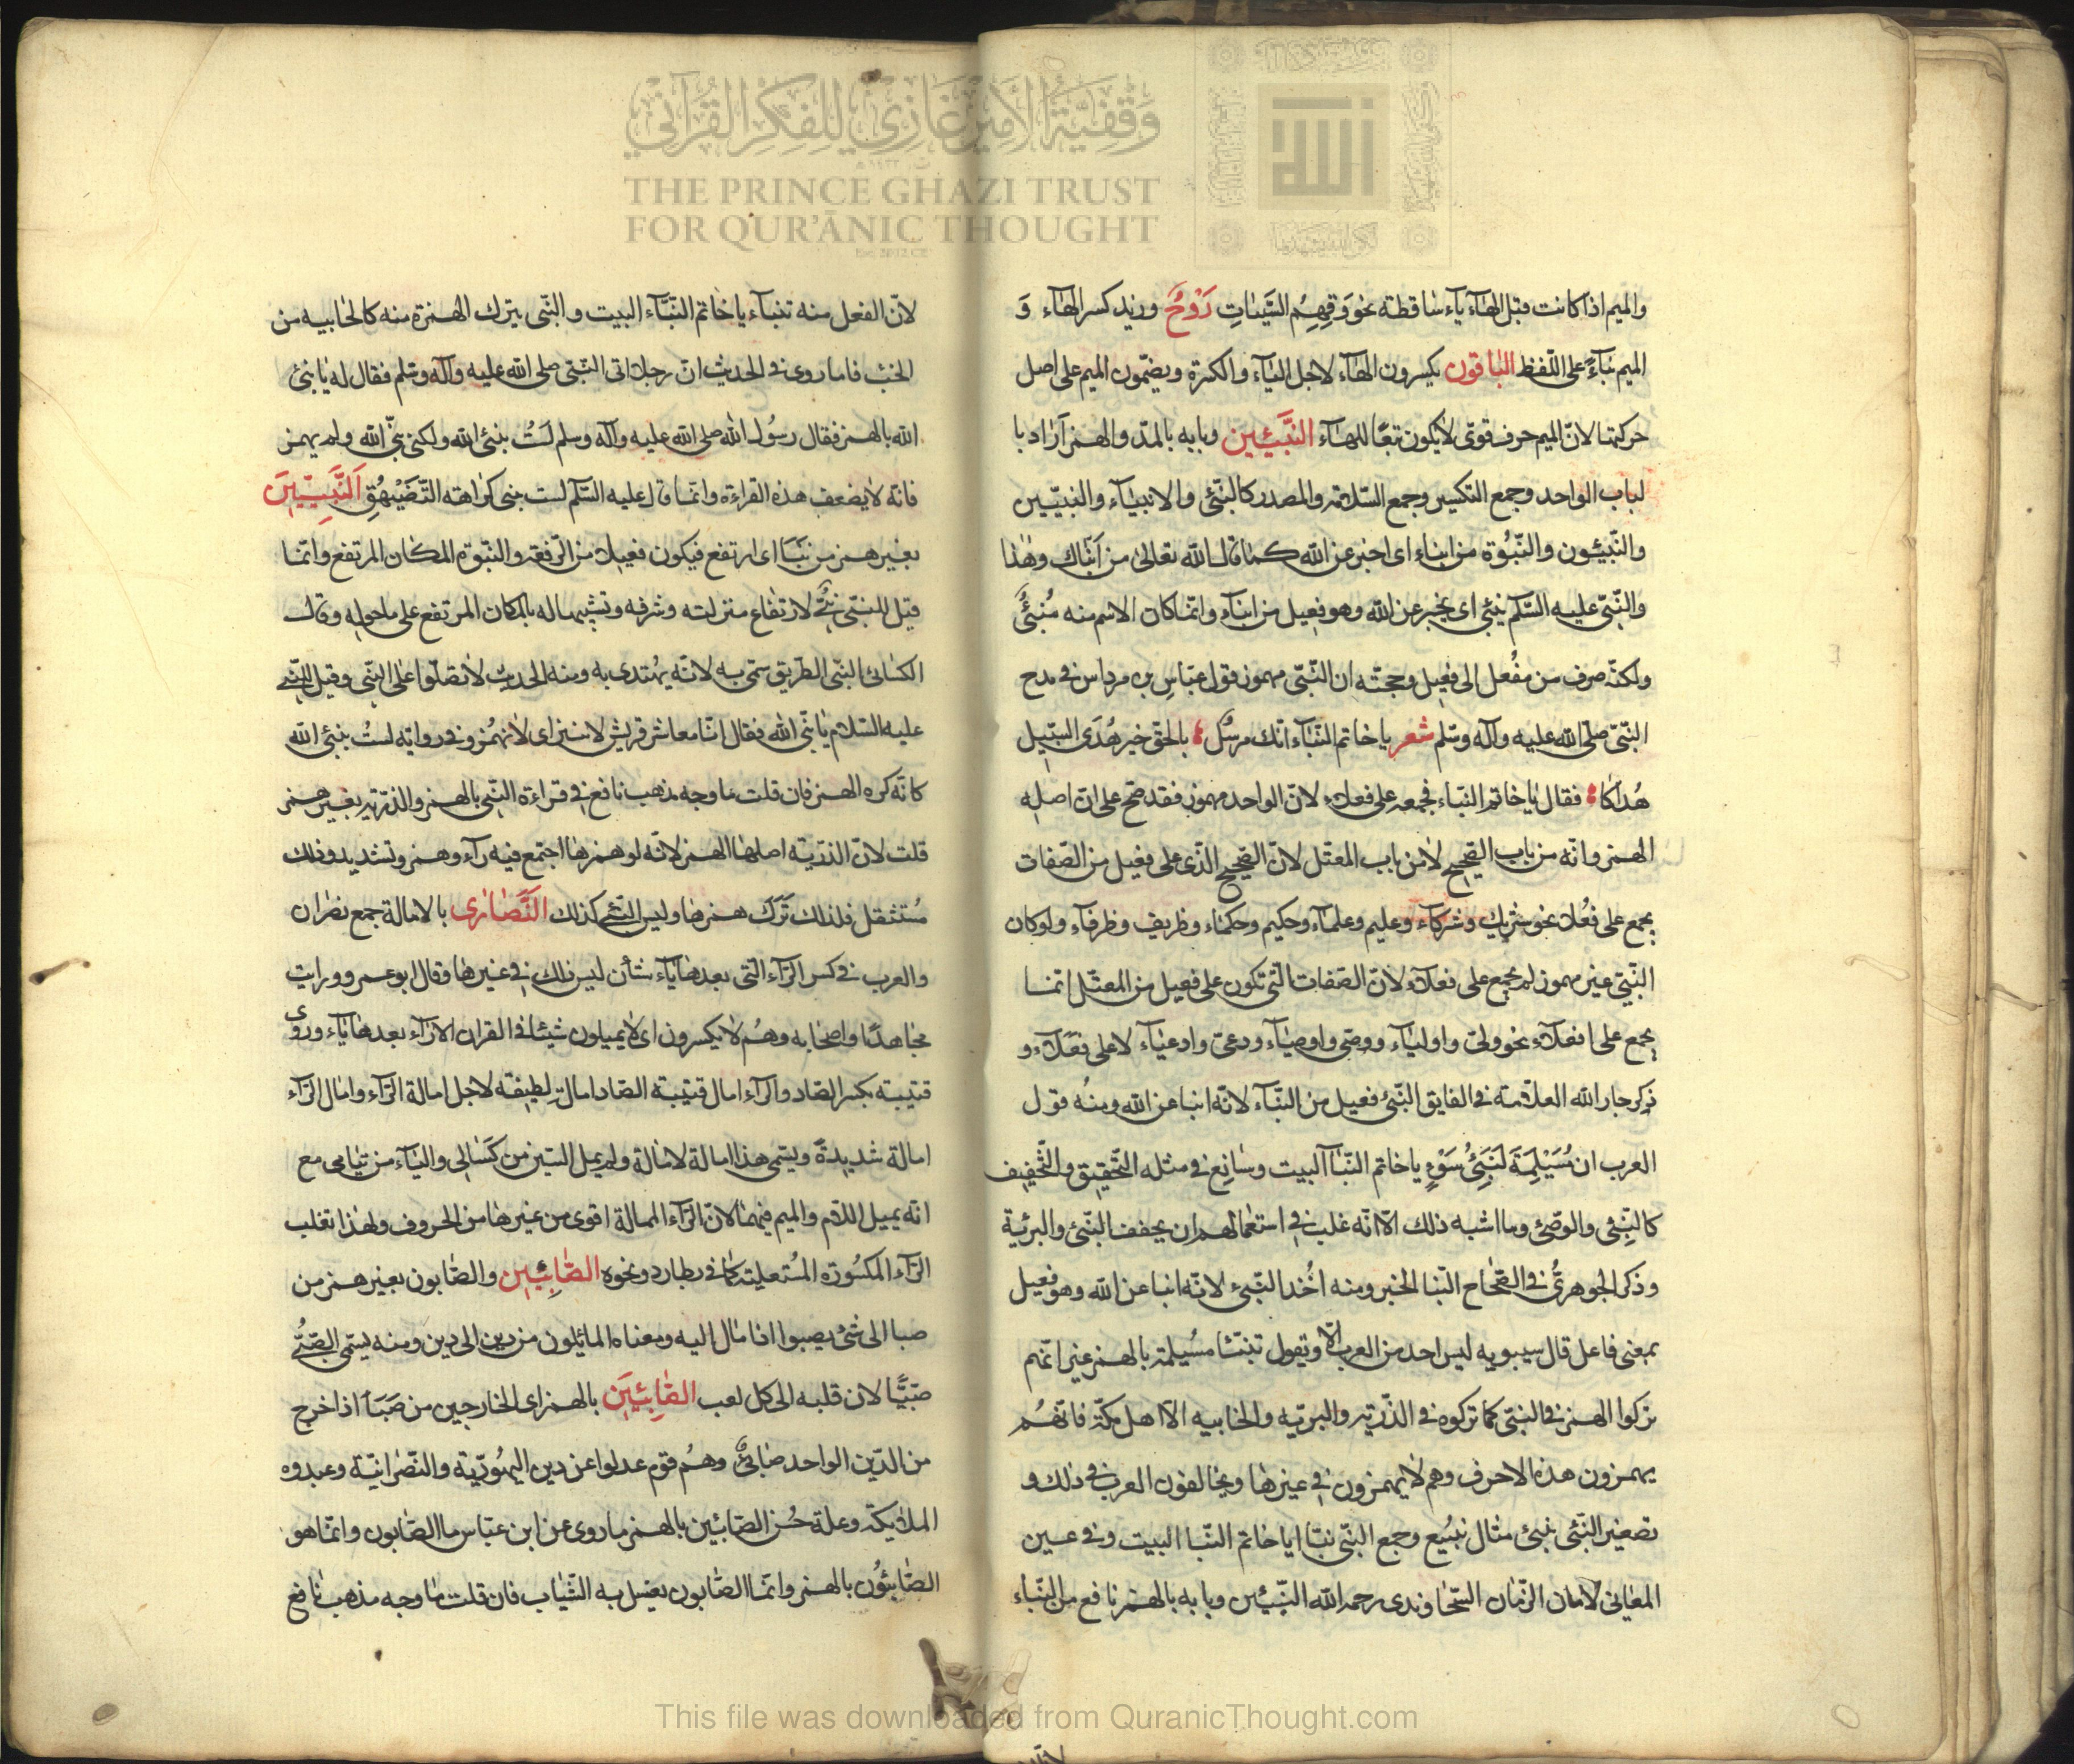 وقفية الأمير غازي للفكر القرآني
THE PRINCE GHAZI TRUST
FOR QUR'ĀNIC THOUGHT
والميم اذا كانت قبل الهآء يآء ساقطة نحو وَقِهِمُ السَّيّئاتِ رَوْحٌ وزيد كسر الهآء وَ
الميم بنآءً على اللّفظ الباقون يكسرون الهآء لاجل اليآء والكسرة ويضمّون الميم على اصل
حركتها لانّ الميم حرف قوىّ لايكون تبعًا للهآء النّبَيِئين وبابه بالمدّ والهمز اَراد با
لباب الواحد وجمع التكسير وجمع السّلامة والمصدر كالنّبئ والانبيآء والنبيّين
والنّبيئون والنّبُوَّة من انباء اى اخبر عن الله كما قال الله تعالى من اَنبَاك وهٰذا
والنّبىّ عليه السّلم ينبئ اى يخبر عن الله وهو فعيل من انبآء وانّما كان الاسم منه مُنبئٌ
ولكنّه صرف من مُفعل الى فعيل وحجّته ان النّبىّ مهموز قول عبّاس بن مرداس فى مدح
النّبىّ صلّى الله عليه وآله وسّلم شعر يا خاتم النّبَآء انّك مرسُل بالحقّ خير هُدَى السّبيل
هُداكا فقال يا خاتم النّباء فجمعه على فعلاء لانّ الواحد مهموز فقد صحّ على انّ اصله
الهمز وانّه من باب الصّحيح لا من باب المعتل لانّ الصّحيح الذّى على فعيل من الصّفات
يجمع على فعُلاء نحو شريك وشركآء وعليم وعلمآء وحكيم وحكماء وظريف وظرفآء ولو كان
النّبىّ غير مهموز لم يجمع على فعلاء لانّ الصّفات الّتى تكون على فعيل من المعتّل انّما
يجمع على افعلاء نحو ولىّ واوليآء ووصّى واوصيآء ودعىّ وادعيآء لا على فعَلاء و
ذكر جار الله العلاّمة فى الفايق النّبئ فعيل من النّبآء لانّه انبا عن الله ومنُه قول
العرب ان مُسَيْلِمَةَ لَنَبِئُ سَوْءٍ يا خاتم النّبآ البيت وسائغ فى مثله التّحقيق والتّخفيف
كالنّبِئى والوصّئ وما اشبه ذلك الّا انّه غلب فى استعمالهم ان يخفف النّبئ والبريّة
وذكر الجوهرىُّ فى الصّحاح النّبا الخبر ومنه اُخذ النّبئ لانّه انبا عن الله وهو فعيل
بمعنى فاعل قال سيبويه ليس احد من العرب الّا ويقول تنبّا مُسيلمة بالهمز غير انّهم
تركوا الهمز فى النّبىّ كما تركوه فى الذّريّة والبريّة والخابية الّا اهل مكّة فانّهُم
يهمزون هذه الاحرف وهم لا يهمزون فى غيرها ويخالفون العرب فى ذلك و
تصغير النّبئى نبيئ مثال نبيّع وجمع النّبىّ نبّا ايا خاتم النّبا البيت وفى عين
المعانى لامان الزّمان السّجاوندى رحمه الله النّبيّئين وبابه بالهمز نافع من النّباء
لانّ الفعل منه تنباء يا خاتم النّبَّآء البيت والنّبى بترك الهمزة منه كالخابيه من
الخبْ فاما روى فى الحديث انّ رجلا اتى النّبى صلى الله عليه وآله وسّلم فقال له يا نبئ
الله بالهمز فقال رسُول الله صلى الله عليه وآله وسلم لَستُ بنبئ الله ولكنى نبّى الله ولم يهمز
فانّه لا يضعف هذه القراءة وانّما قال عليه السّلم لست بنبئ كراهة التّضَيْهُقِ اَلنَّبِيّيِنَ
بغير همز من نَبَا اى ارتفع فيكون فعيلا من الرّفعة والنّبوّة المكان المرتفع وانّما
قيل للنبّى نبىّ لارتفاع منزلته وشرفه وتشبيها له بالمكان المرتفع على ما حوله وقال
الكسائى النبّى الطّريق سمّى به لانّه يُهتدى به ومنه الحديث لا تصلّوا على النبّى وقيل للنبىّ
عليه السّلام يا نبّى الله فقال انّا معاشر قريش لا ننبز اى لا نهمُز وفى رواية لستُ بنبئ الله
كانّه كره الهمز فان قلت ما وجه مذهب نافع فى قراءة النّبى بالهمز والذّرّيّة بغير همز
قلت لانّ الذرّيّة اصلها الهمز لانّه لو همزها اجتمع فيه رآء وهمز وتشديد وذلك
مُستثقل فلذلك تَرَك همزها وليس النّبىّ كذلك النَّصَارى بالامالة جمع نصران
والعرب فى كسر الرّآء الّتى بعدها يآء شأن ليس ذلك فى غيرها وقال ابو عمرو ورايت
مجاهدًا واصحابه وهُم لا يكسرون اى لا يميلون شيئا فى القران الا رآء بعدها يآء وروى
قتيبة بكسر الصّاد والرآء امال قتيبة الصّاد امالة لطيفة لاجل امالة الرّآء وامال الرّآء
امالة شديدةً ويسّمى هذا امالة لامالة ولم يمل السّين من كَسَالى واليآء من يتامى مع
انّه يميل اللّام والميم فيهما لانّ الرّآء الممالة اقوى من غيرها من الحروف ولهذا تغلب
الرّآء المكسُورة المُستعلية كما فى بطارد ونحوه الصَّابِيِين والصّابون بغير همز من
صبا الى شئ يصبوا اذا مال اليه ومعناه المائلون من دين الى دين ومنه يسّمى الصّبُّى
صَبيًّا لان قلبه الى كل لعب الصَّابِئيِنَ بالهمز اى الخارجين من صَبَأ اذا خرج
من الدّين الواحد صابئٌ وهُم قوم عدلوا عن دين اليهُوديّة والنّصرانيّة وعبدوه
الملائكة وعلة حُسن الصّابئين بالهمز ما روى عن ابن عبّاس ما الصّابون وانّما هو
الصّابئوُن بالهمز وانّما الصّابون يغسل به الثّياب فان قلت ما وجه مذهب نافع
This file was downloaded from QuranicThought.com